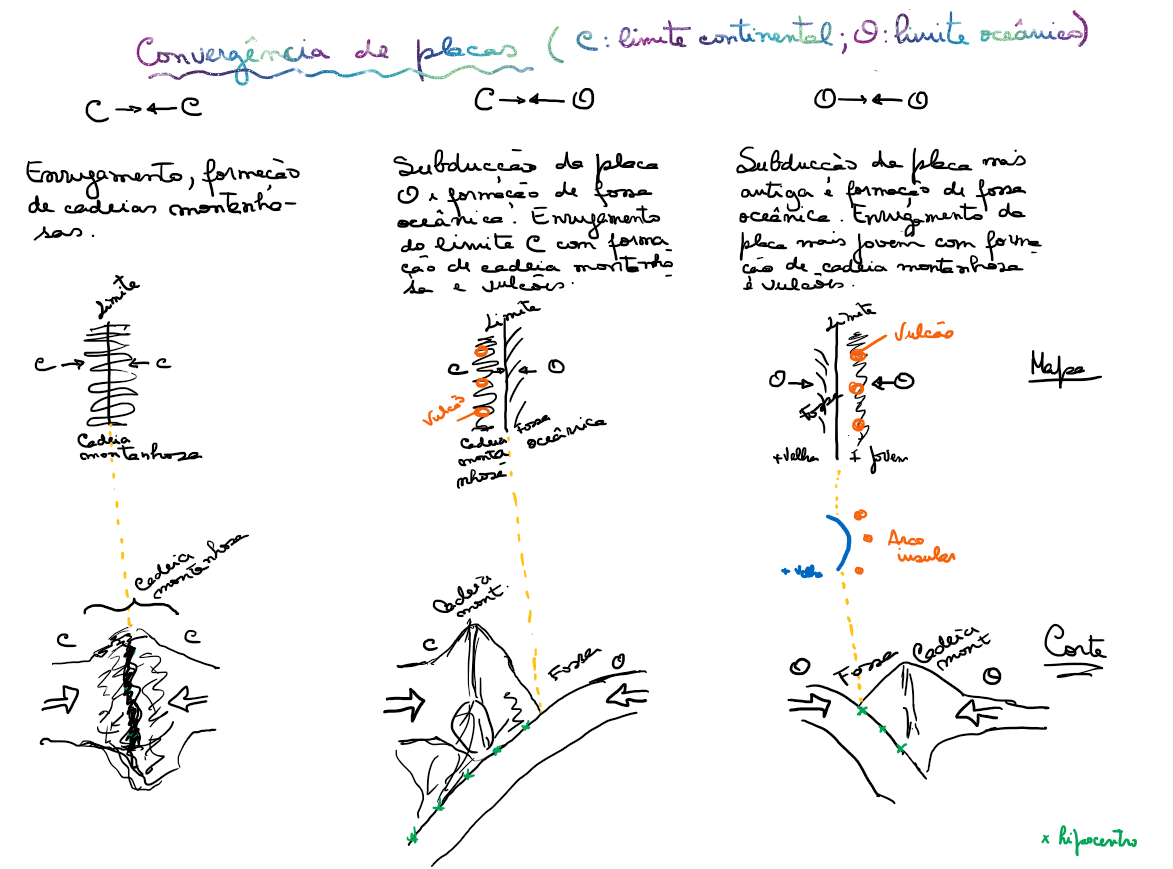 Convergência de placas (C: limite continental; O: limite oceânico)
C →← C
Enrugamento, formação
de cadeias montanho-
sas.
C →← O
Subducção da placa
O e formação de fossa
oceânica. Enrugamento
do limite C com forma
ção de cadeia montanho
sa e vulcões.
O →← O
Subducção da placa mais
antiga e formação de fossa
oceânica. Enrugamento da
placa mais jovem com forma
ção de cadeia montanhosa
e vulcões.
Limite
C → ← C
Cadeia
montanhosa
Limite
C → ← O
Vulcão
Fossa
oceânica
Cadeia
monta
nhosa
Limite
Vulcão
O → ← O
Fossa
+ Velha
+ jovem
Mapa
Arco
insular
+ velha
Cadeia
montanhosa
C
C
Cadeia
mont.
C
Fossa
O
O
Fossa
Cadeia
mont
O
Corte
x hipocentro